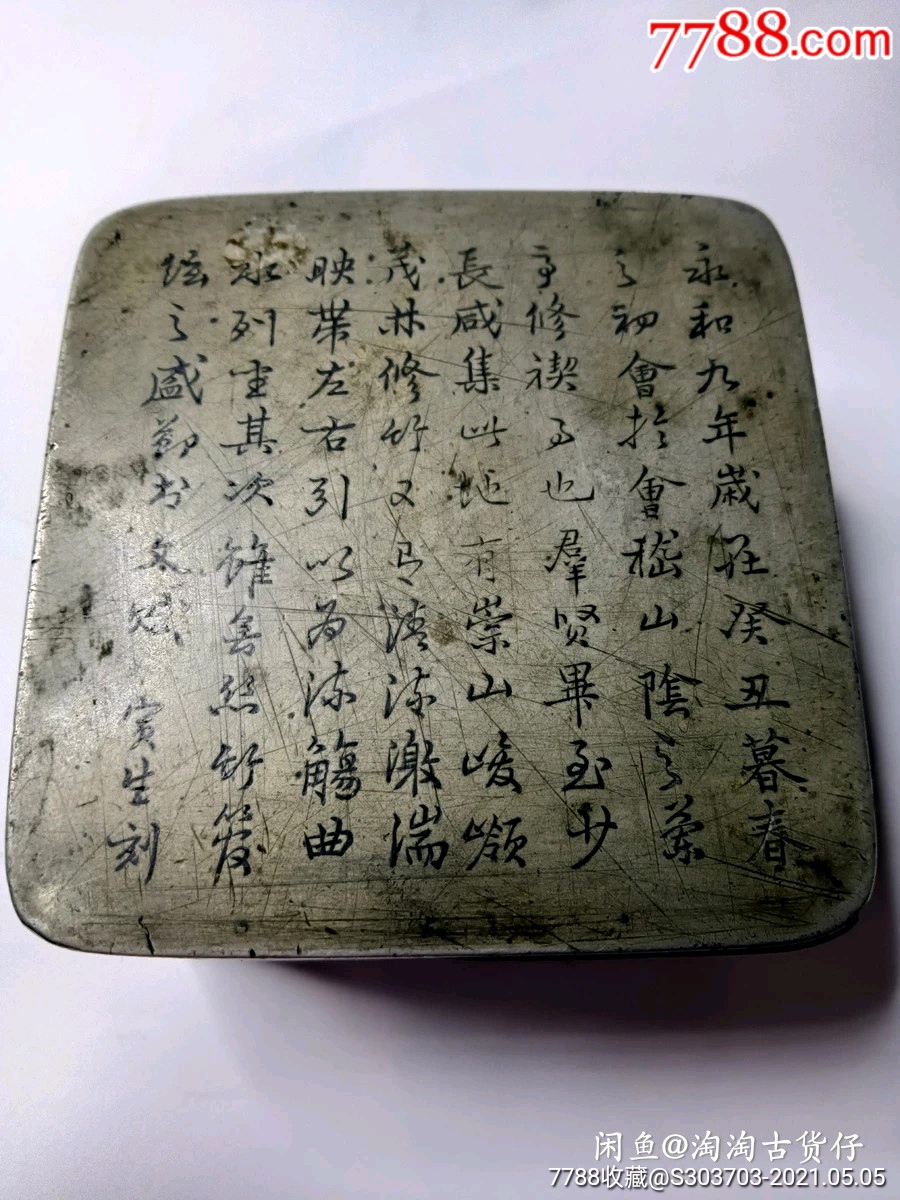 7788.com
永和九年歲在癸丑暮春
之初會於會稽山陰之蘭
亭修禊事也羣賢畢至少
長咸集此地有崇山峻嶺
茂林修竹又有清流激湍
映帶左右引以為流觴曲
水列坐其次雖無絲竹管
弦之盛 文 寅生刻
闲鱼@淘淘古货仔
7788收藏@S303703-2021.05.05